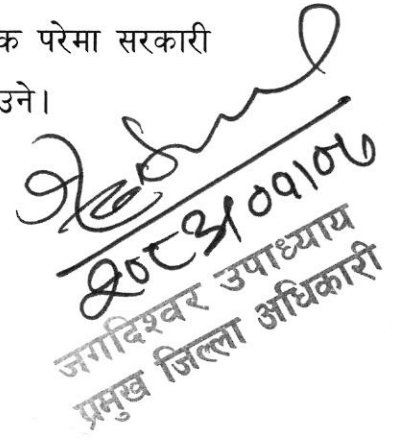 क परेमा सरकारी
उने।
२०८३/०१/०७
जगदिश्वर उपाध्याय
प्रमुख जिल्ला अधिकारी